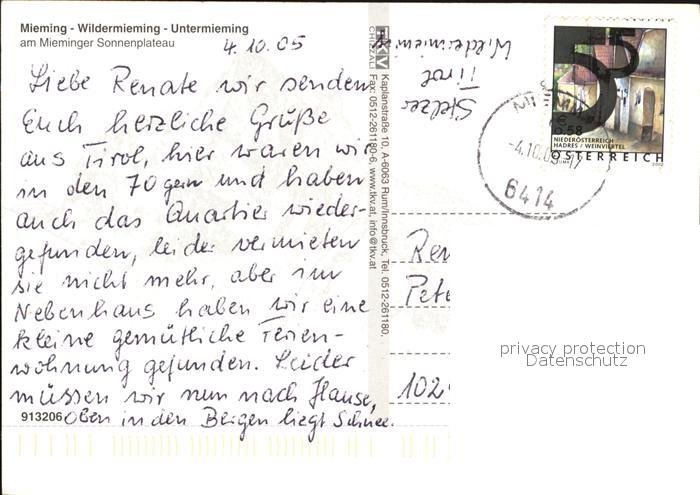 Mieming - Wildermieming - Untermieming
am Mieminger Sonnenplateau
4.10.05
Liebe Renate wir senden
Euch herzliche Grüße
aus Tirol, hier waren wir
in den 70gern und haben
auch das Quartier wieder-
gefunden, leider vermieten
sie nicht mehr, aber im
Nebenhaus haben wir eine
kleine gemütliche Ferien-
wohnung gefunden. Leider
müssen wir nun nach Hause,
Oben in den Bergen liegt Schnee.
913206
TKV
Kaplanstraße 10, A-6063 Rum/Innsbruck, Tel. 0512-261180
Fax: 0512-261180-6, www.tkv.at, info@tkv.at
Wildermiemi
Tirol
Stelzer
€ 0.58
NIEDERÖSTERREICH
HADRES / WEINVIERTEL
ÖSTERREICH
2002
-4.10.05-17
6414
Ren
Pete
102
privacy protection
Datenschutz